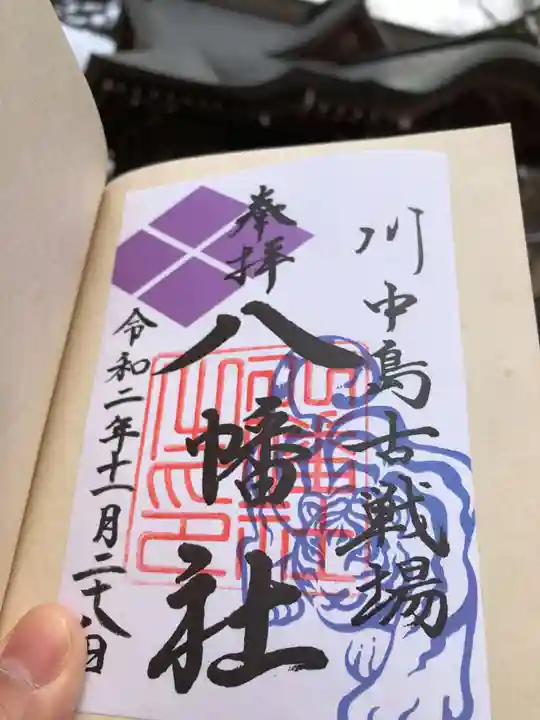 川中島古戦場
奉拝
八幡社
令和二年十一月二十八日